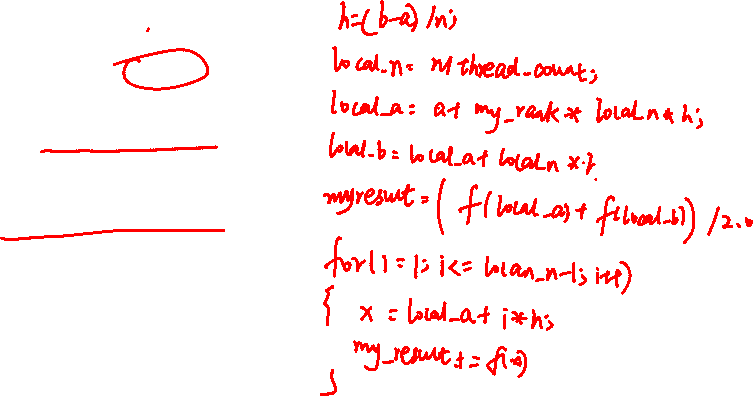 h=(b-a)/n;
local_n= n/thread_count;
local_a= a+ my_rank* local_n*h;
local_b= local_a+ local_n *
myresult= (f(local_a)+ f(local_b))/2.0
for(i=1; i<= locan_n-1; i++)
{ x = local_a+ i*h;
my_result+=
}